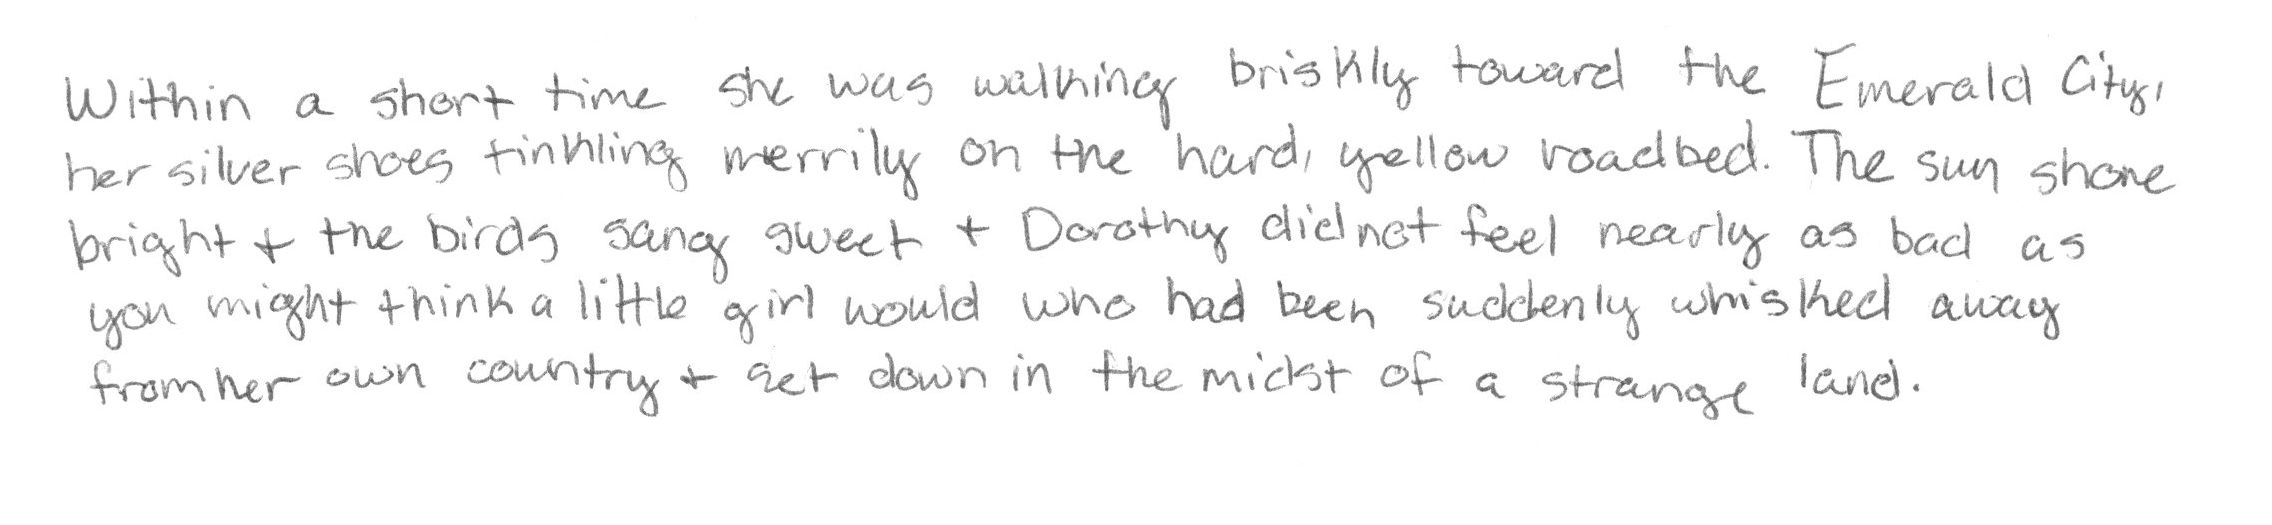 Within a short time she was walking briskly toward the Emerald City,
her silver shoes tinkling merrily on the hard, yellow roadbed. The sun shone
bright + the birds sang sweet + Dorothy did not feel nearly as bad as
you might think a little girl would who had been suddenly whisked away
from her own country + set down in the midst of a strange land.